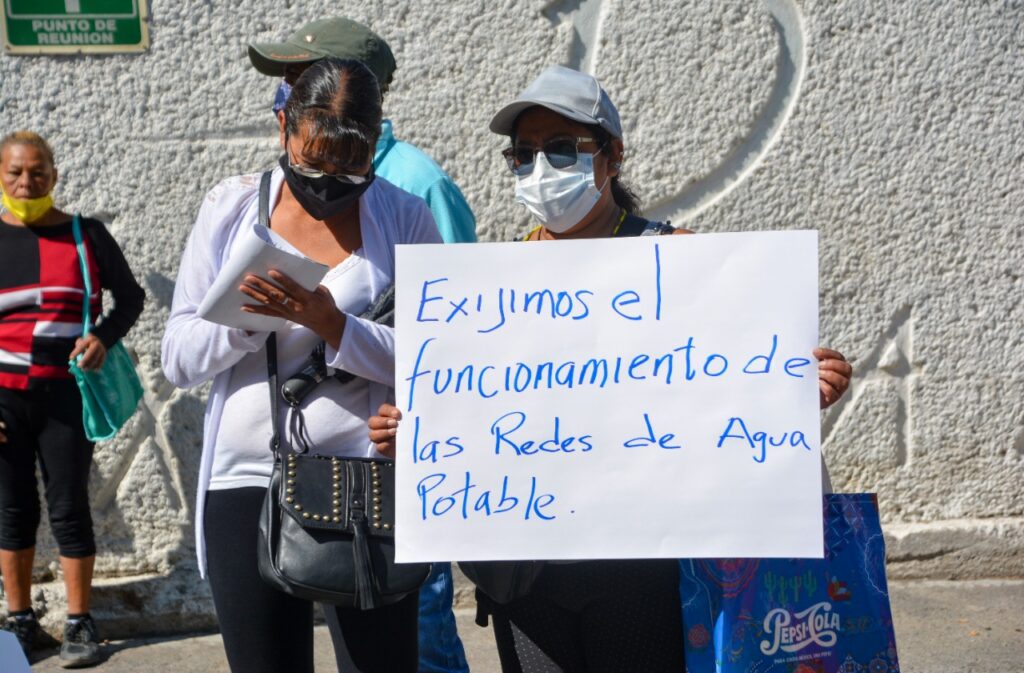 PUNTO DE
REUNION
Exijimos el
funcionamiento de
las Redes de Agua
Potable.
PEPSI-COLA